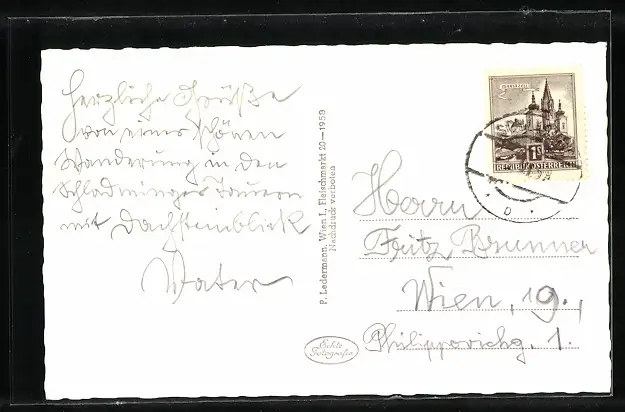 Herzliche Grüße
von einer schönen
Wanderung in den
Schladminger Tauern
mit Dachsteinblick
Vater
P. Ledermann, Wien I., Fleischmarkt 20—1958
Nachdruck verboten
Echte
Fotografie
MARIAZELL
1S
REPUBLIK ÖSTERREICH
Herrn
Fritz Brunner
Wien, 19.,
Philippovichg. 1.